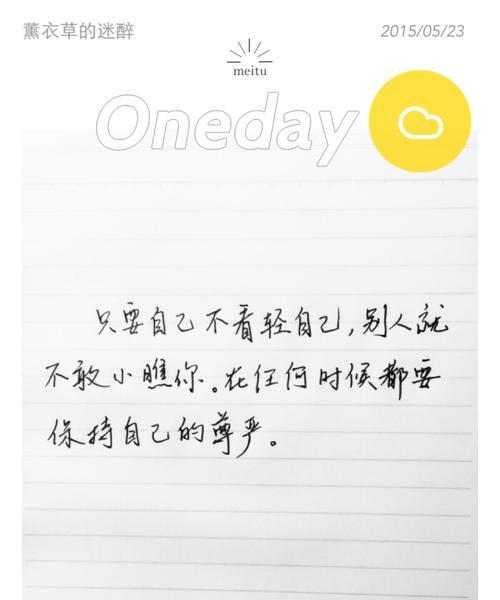 薰衣草的迷醉
2015/05/23
meitu
Oneday
只要自己不看轻自己,别人就
不敢小瞧你。在任何时候都要
保持自己的尊严。